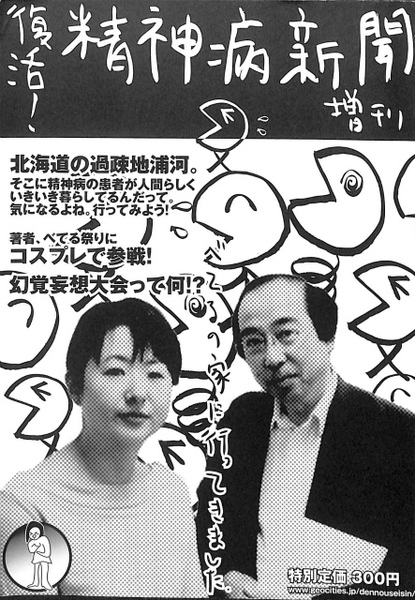 復活!
精神病新聞
増刊
北海道の過疎地浦河。
そこに精神病の患者が人間らしく
いきいき暮らしてるんだって。
気になるよね。行ってみよう!
著者、べてる祭りに
コスプレで参戦!
幻覚妄想大会って何!?
べてるの家に行ってきました。
特別定価 300円
www.geocities.jp/dennouseisin/